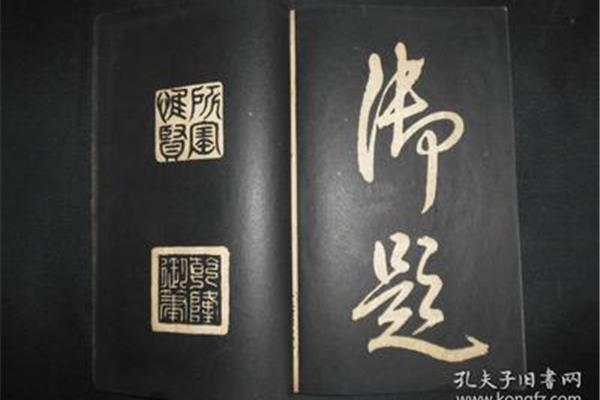 御題
所寶惟賢
乾隆御筆
孔夫子旧书网
www.kongfz.com